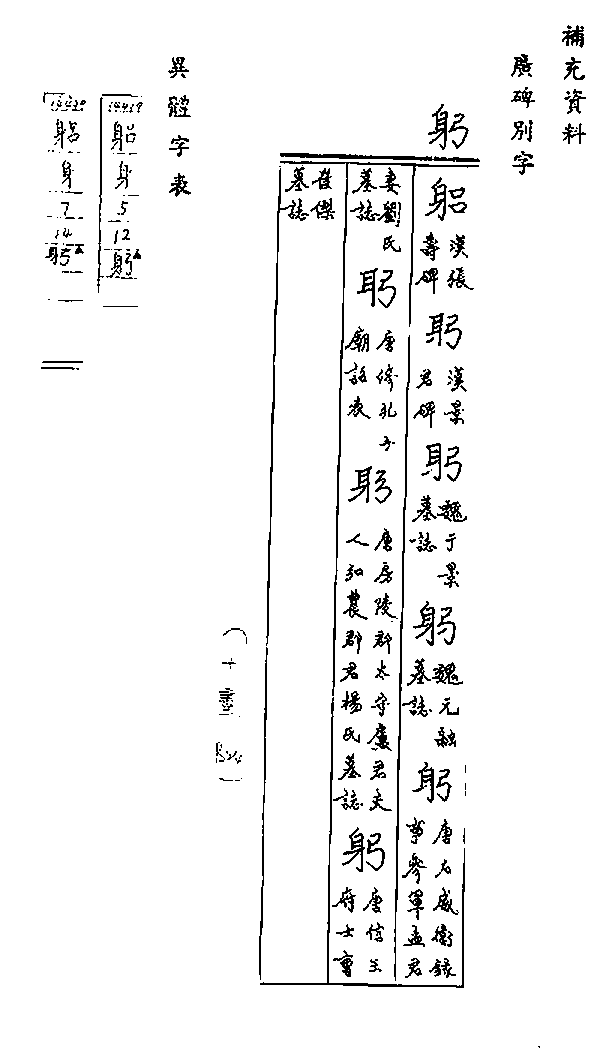 補充資料
廣碑別字
躬
躳 漢張壽碑 躬 漢景君碑 躬 魏于景墓誌 躬 魏元融墓誌 躬 唐右威衛錄事參軍孟君
妻劉氏墓誌 躬 唐脩孔子廟詔表 躬 唐房陵郡太守盧君夫人弘農郡君楊氏墓誌 躬 唐信王府士曹
崔傑墓誌
(十畫
異體字表
躳
身
5
12
躬▲
躳
身
7
14
躬▲